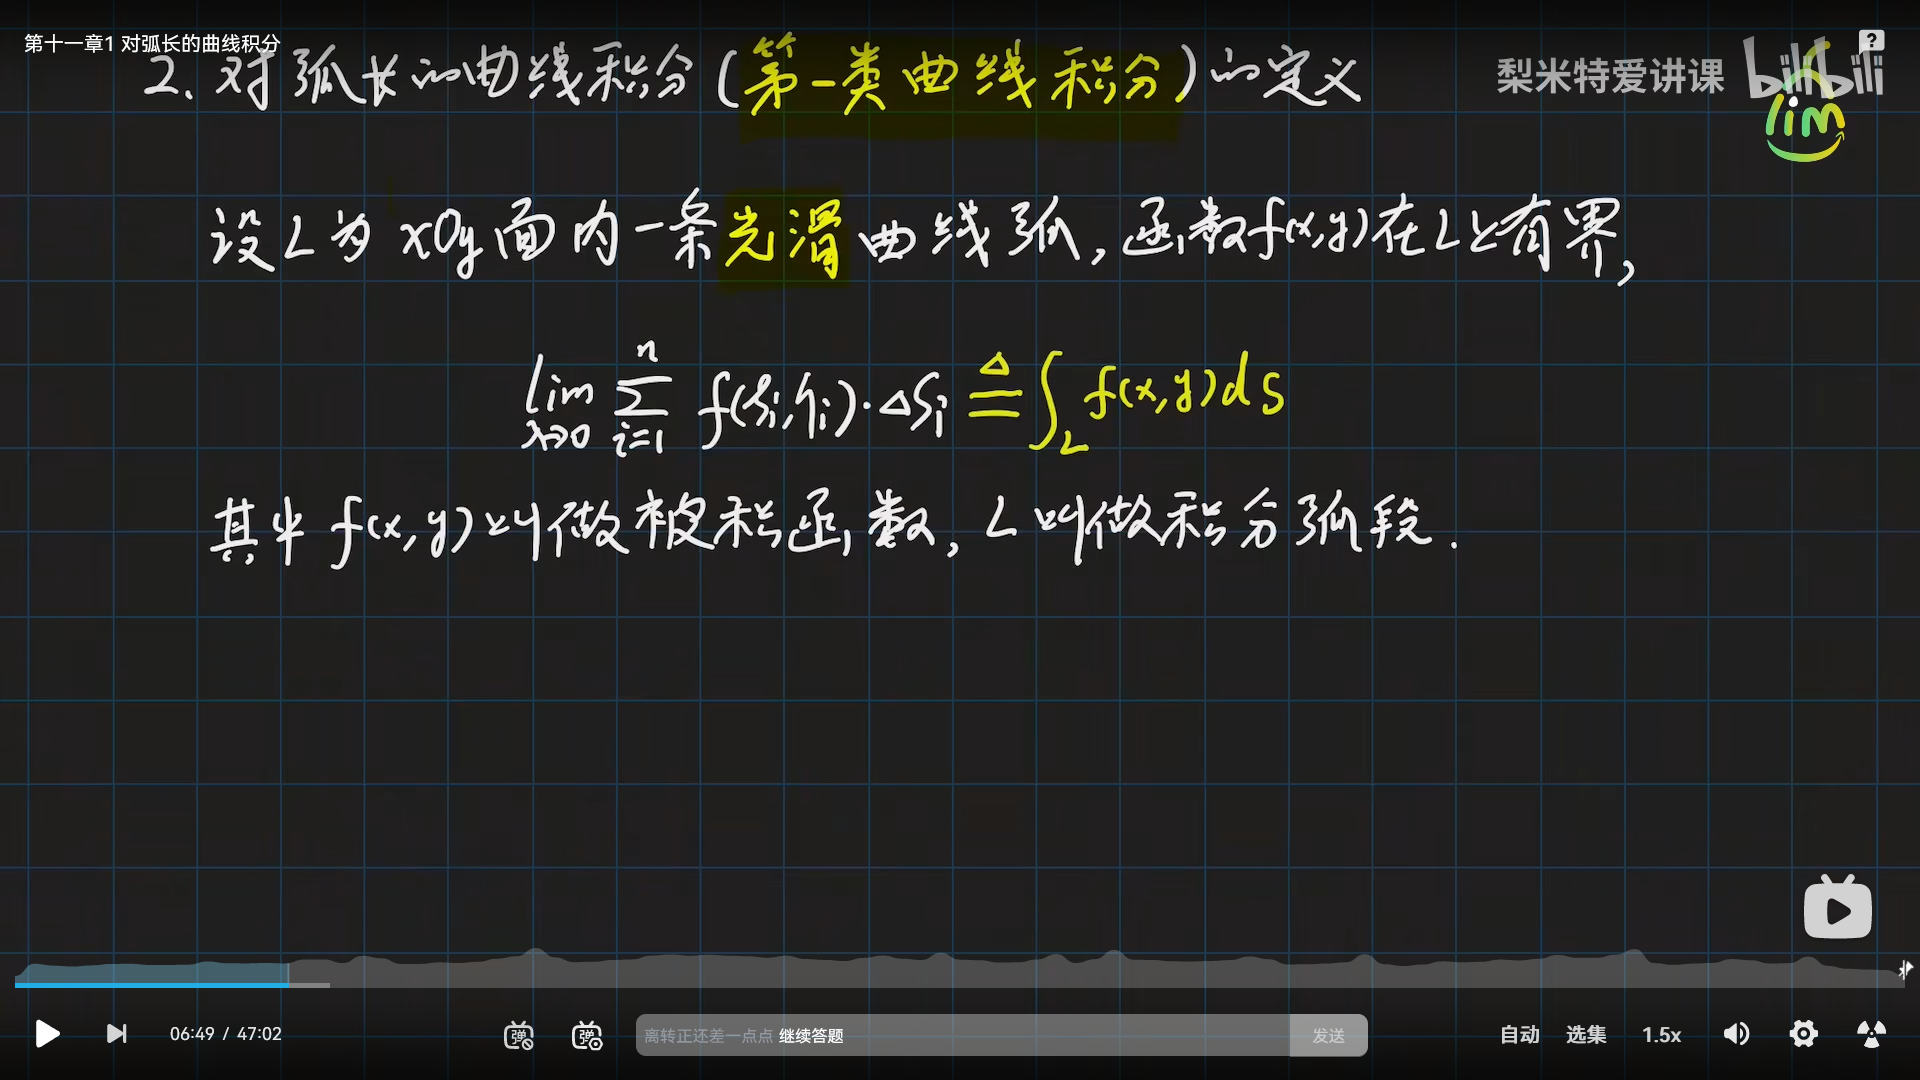 第十一章1 对弧长的曲线积分
2. 对弧长的曲线积分(第一类曲线积分)的定义
梨米特爱讲课 bilibili
?
lim
设L为xOy面内一条光滑曲线弧,函数f(x,y)在L上有界,
lim λ→0 Σ i=1 n f(ξi,ηi)·ΔSi ≜ ∫L f(x,y)ds
其中f(x,y)叫做被积函数,L叫做积分弧段.
06:49 / 47:02
弹 弹
离转正还差一点点 继续答题 发送
自动 选集 1.5x